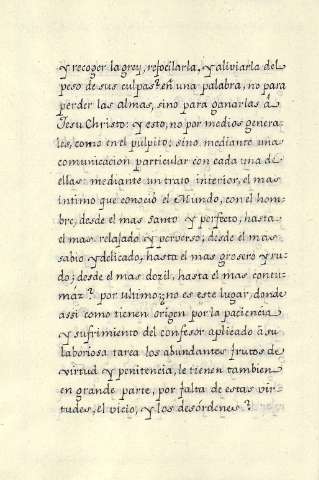 y recoger la grey, refocilarla, y aliviarla del
peso de sus culpas? en una palabra, no para
perder las almas, sino para ganarlas á
Jesu Christo: y esto, no por medios genera-
les, como en el púlpito; sino mediante una
comunicacion particular con cada una de
ellas mediante un trato interior, el mas
intimo que conoció el Mundo, con el hom-
bre, desde el mas santo y perfecto, hasta
el mas relajado y perverso; desde el mas
sabio y delicado, hasta el mas grosero y ru-
do; desde el mas dozil, hasta el mas contu-
máz? por ultimo; no es este lugar, donde
assi como tienen origen por la paciencia
y sufrimiento del confesor aplicado á su
laboriosa tarea los abundantes frutos de
virtud y penitencia, le tienen tambien
en grande parte, por falta de estas vir-
tudes, el vicio, y los desórdenes?